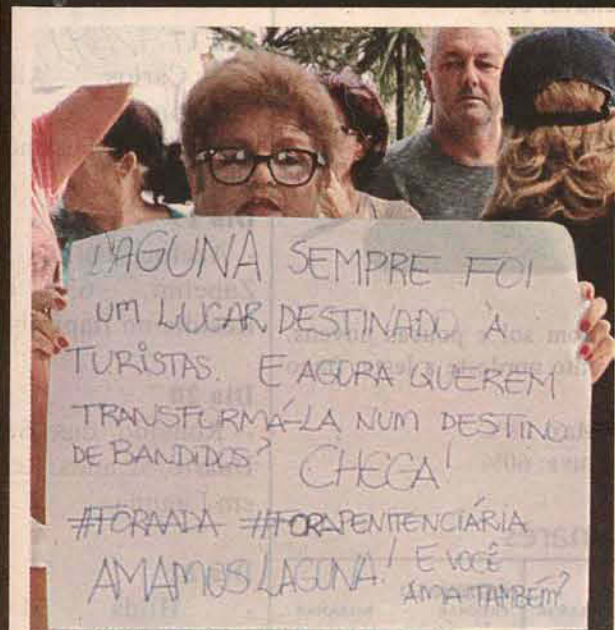 LAGUNA SEMPRE FOI
UM LUGAR DESTINADO À
TURISTAS. E AGORA QUEREM
TRANSFORMÁ-LA NUM DESTINO
DE BANDIDOS? CHEGA!
#FORAADA #FORAPENITENCIÁRIA
AMAMOS LAGUNA! E VOCÊ
AMA TAMBÉM?